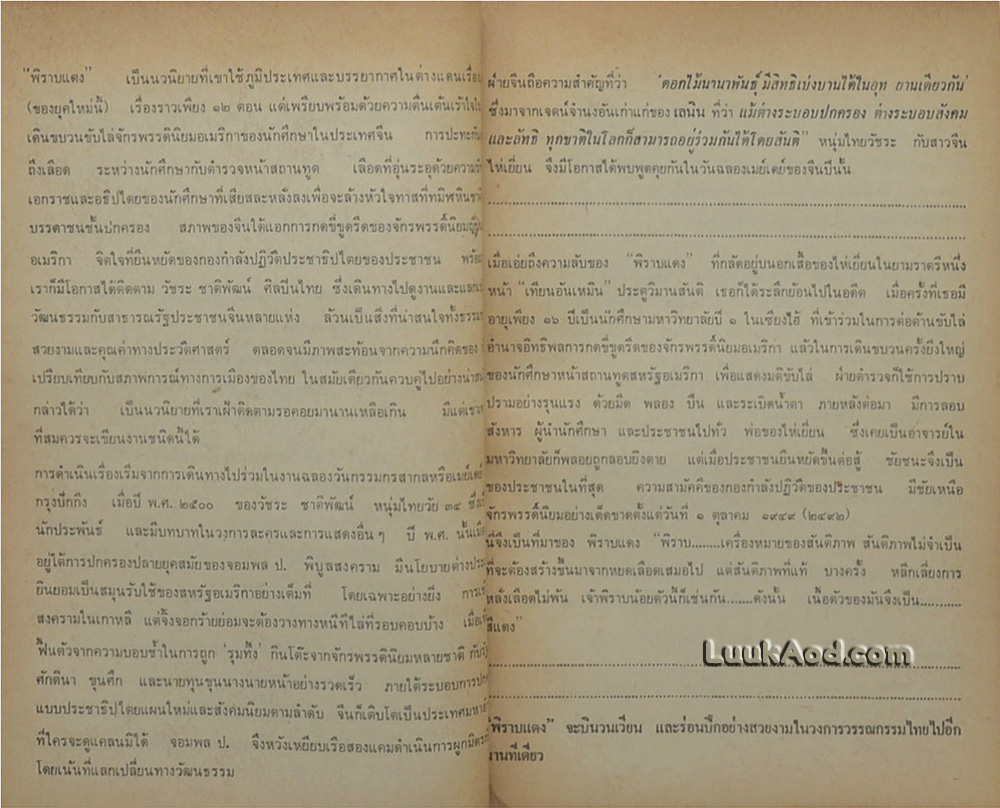 “พิราบแดง” เป็นนวนิยายที่เขาใช้ภูมิประเทศและบรรยากาศในต่างแดนเรื่อง
(ของยุคใหม่นี้) เรื่องราวเพียง ๑๒ ตอน แต่เพรียบพร้อมด้วยความตื่นเต้นเร้าใจ
เดินขบวนขับไล่จักรพรรดินิยมอเมริกาของนักศึกษาในประเทศจีน การปะทะกัน
ถึงเลือด ระหว่างนักศึกษากับตำรวจหน้าสถานทูต เลือดที่อุ่นระอุด้วยความรัก
เอกราชและอธิปไตยของนักศึกษาที่เสียสละหลั่งลงเพื่อจะล้างหัวใจทาสที่ทมิฬหินชาติ
บรรดาชนชั้นปกครอง สภาพของจีนใต้แอกการกดขี่ขูดรีดของจักรพรรดินิยมญี่ปุ่น
อเมริกา จิตใจที่ยืนหยัดของกองกำลังปฏิวัติประชาธิปไตยของประชาชน พร้อม
เราก็มีโอกาสได้ติดตาม วัชระ ชาติพัฒน์ ศิลปินไทย ซึ่งเดินทางไปดูงานและแลก
วัฒนธรรมกับสาธารณรัฐประชาชนจีนหลายแห่ง ล้วนเป็นสิ่งที่น่าสนใจทั้งธรรม
สวยงามและคุณค่าทางประวัติศาสตร์ ตลอดจนมีภาพสะท้อนจากความนึกคิดของ
เปรียบเทียบกับสภาพการณ์ทางการเมืองของไทย ในสมัยเดียวกันควบคู่ไปอย่างน่า
กล่าวได้ว่า เป็นนวนิยายที่เราเฝ้าติดตามรอคอยมานานเหลือเกิน มีแต่เขา
ที่สมควรจะเขียนงานชนิดนี้ได้
การดำเนินเรื่องเริ่มจากการเดินทางไปร่วมในงานฉลองวันกรรมกรสากลหรือเมย์เดย์
กรุงปักกิ่ง เมื่อปี พ.ศ. ๒๕๐๐ ของวัชระ ชาติพัฒน์ หนุ่มไทยวัย ๓๔ ซึ่ง
นักประพันธ์ และมีบทบาทในวงการละครและการแสดงอื่น ๆ ปี พ.ศ. นั้น
อยู่ใต้การปกครองปลายยุคสมัยของจอมพล ป. พิบูลสงคราม มีนโยบายต่างประ
ยินยอมเป็นสมุนรับใช้ของสหรัฐอเมริกาอย่างเต็มที่ โดยเฉพาะอย่างยิ่ง การ
สงครามในเกาหลี แต่จิ้งจอกร้ายย่อมจะต้องวางทางหนีทีไล่ที่รอบคอบบ้าง เมื่อ
ฟื้นตัวจากความบอบช้ำในการถูก ‘รุมทึ้ง’ กินโต๊ะจากจักรพรรดินิยมหลายชาติ กับ
ศักดินา ขุนศึก และนายทุนขุนนางนายหน้าอย่างรวดเร็ว ภายใต้ระบอบการปก
แบบประชาธิปไตยแผนใหม่และสังคมนิยมตามลำดับ จีนก็เติบโตเป็นประเทศมหา
ที่ใครจะดูแคลนมิได้ จอมพล ป. จึงหวังเหยียบเรือสองแคมดำเนินการผูกมิตร
โดยเน้นที่แลกเปลี่ยนทางวัฒนธรรม
ฝ่ายจีนถือความสำคัญที่ว่า ‘ดอกไม้นานาพันธุ์ มีสิทธิเบ่งบานได้ในอุท ยานเดียวกัน’
ซึ่งมาจากเจตน์จำนงอันเก่าแก่ของ เลนิน ที่ว่า แม้ต่างระบอบปกครอง ต่างระบอบสังคม
และลัทธิ ทุกชาติในโลกก็สามารถอยู่ร่วมกันได้โดยสันติ” หนุ่มไทยวัชระ กับสาวจีน
ไห่เยี่ยน จึงมีโอกาสได้พบพูดคุยกันในวันฉลองเมย์เดย์ของจีนปีนั้น
................................................................................
................................................................................
เมื่อเอ่ยถึงความลับของ “พิราบแดง” ที่กลัดอยู่บนอกเสื้อของไห่เยี่ยนในยามราตรีหนึ่ง
หน้า “เทียนอันเหมิน” ประตูวิมานสันติ เธอก็ได้ระลึกย้อนไปในอดีต เมื่อครั้งที่เธอมี
อายุเพียง ๑๖ ปีเป็นนักศึกษามหาวิทยาลัยปี ๑ ในเซี่ยงไฮ้ ที่เข้าร่วมในการต่อต้านขับไล่
อำนาจอิทธิพลการกดขี่ขูดรีดของจักรพรรดินิยมอเมริกา แล้วในการเดินขบวนครั้งยิ่งใหญ่
ของนักศึกษาหน้าสถานทูตสหรัฐอเมริกา เพื่อแสดงมติขับไล่ ฝ่ายตำรวจก็ใช้การปราบ
ปรามอย่างรุนแรง ด้วยมีด พลอง ปืน และระเบิดน้ำตา ภายหลังต่อมา มีการลอบ
สังหาร ผู้นำนักศึกษา และประชาชนไปทั่ว พ่อของไห่เยี่ยน ซึ่งเคยเป็นอาจารย์ใน
มหาวิทยาลัยก็พลอยถูกลอบยิงตาย แต่เมื่อประชาชนยืนหยัดขึ้นต่อสู้ ชัยชนะจึงเป็น
ของประชาชนในที่สุด ความสามัคคีของกองกำลังปฏิวัติของประชาชน มีชัยเหนือ
จักรพรรดินิยมอย่างเด็ดขาดตั้งแต่วันที่ ๑ ตุลาคม ๑๙๔๙ (๒๔๙๒)
นี่จึงเป็นที่มาของ พิราบแดง “พิราบ........เครื่องหมายของสันติภาพ สันติภาพไม่จำเป็น
ที่จะต้องสร้างขึ้นมาจากหยดเลือดเสมอไป แต่สันติภาพที่แท้ บางครั้ง หลีกเลี่ยงการ
หลั่งเลือดไม่พ้น เจ้าพิราบน้อยตัวนี้ก็เช่นกัน.......ดังนั้น เนื้อตัวของมันจึงเป็น..........
สีแดง”
LuukAod.com
................................................................................
................................................................................
“พิราบแดง” จะบินวนเวียน และร่อนปีกอย่างสวยงามในวงการวรรณกรรมไทยไปอีก
นานทีเดียว